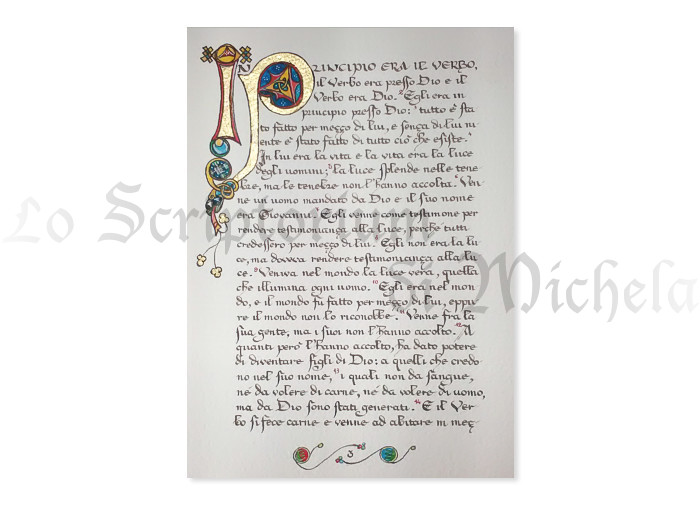 IN PRINCIPIO ERA IL VERBO,
il Verbo era presso Dio e il
Verbo era Dio. ²Egli era in
principio presso Dio: ³tutto è sta-
to fatto per mezzo di lui, e senza di lui ni-
ente è stato fatto di tutto ciò che esiste. ⁴
In lui era la vita e la vita era la luce
degli uomini; ⁵la luce splende nelle tene-
bre, ma le tenebre non l'hanno accolta. ⁶Ven-
ne un uomo mandato da Dio e il suo nome
era Giovanni. ⁷Egli venne come testimone per
rendere testimonianza alla luce, perché tutti
credessero per mezzo di lui. ⁸Egli non era la lu-
ce, ma doveva rendere testimonianza alla lu-
ce. ⁹Veniva nel mondo la luce vera, quella
che illumina ogni uomo. ¹⁰Egli era nel mon-
do, e il mondo fu fatto per mezzo di lui, eppu-
re il mondo non lo riconobbe. ¹¹Venne fra la
sua gente, ma i suoi non l'hanno accolto. ¹²A
quanti però l'hanno accolto, ha dato potere
di diventare figli di Dio: a quelli che credo-
no nel suo nome, ¹³i quali non da sangue,
né da volere di carne, né da volere di uomo,
ma da Dio sono stati generati. ¹⁴E il Ver-
bo si fece carne e venne ad abitare in mez-
3
Lo Scriptorium
di Michela